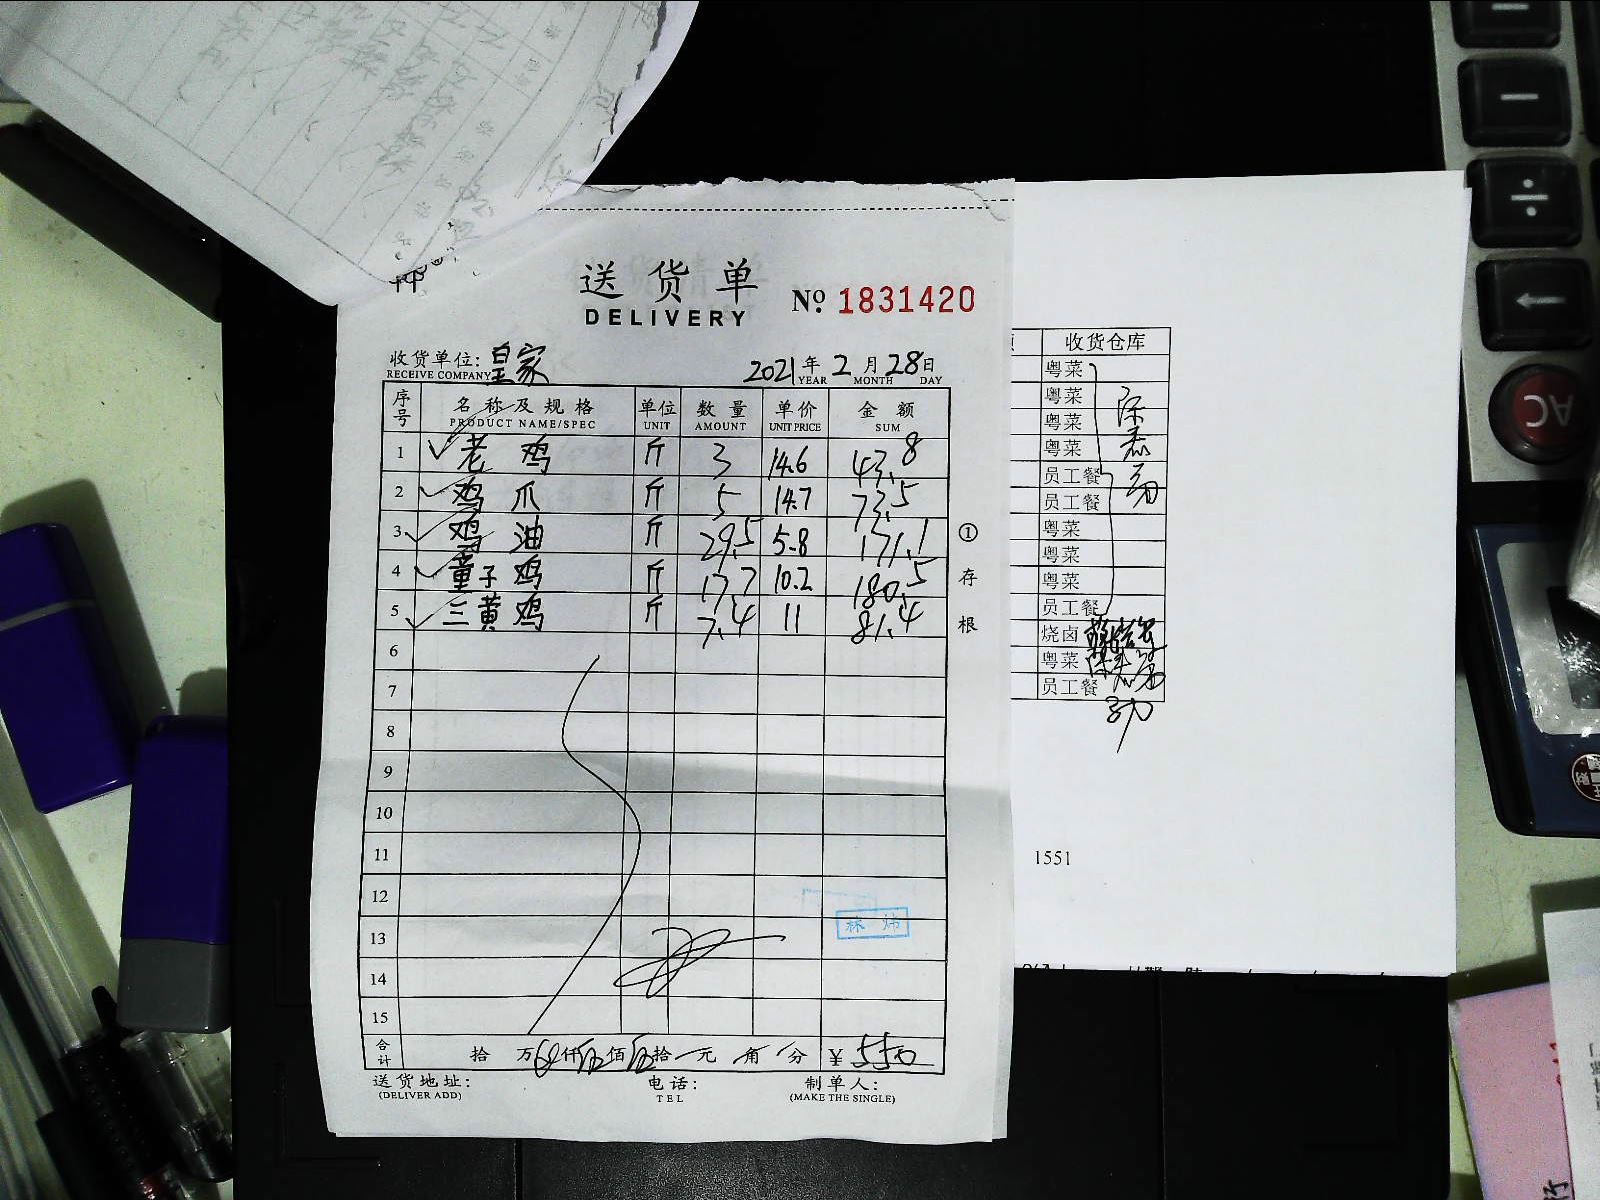 送货单
DELIVERY
Nº 1831420
收货单位: 皇家
RECEIVE COMPANY
2021年2月28日
YEAR MONTH DAY
序号 名称及规格 单位 数量 单价 金额
PRODUCT NAME/SPEC UNIT AMOUNT UNIT PRICE SUM
1 老鸡 斤 3 14.6 43.8
2 鸡爪 斤 5 14.7 73.5
3 鸡油 斤 29.5 5.8 171.1
4 童子鸡 斤 17.7 10.2 180.5
5 三黄鸡 斤 7.4 11 81.4
6
7
8
9
10
11
12
13
14
15
合计 拾 万 仟伍佰伍拾 元 角 分 ¥ 550
送货地址: 电话: 制单人:
(DELIVER ADD) TEL (MAKE THE SINGLE)
①存根
林炜
收货仓库
粤菜
粤菜
粤菜
粤菜
员工餐
员工餐
粤菜
粤菜
粤菜
员工餐
烧卤
粤菜
员工餐
1551
AC
÷